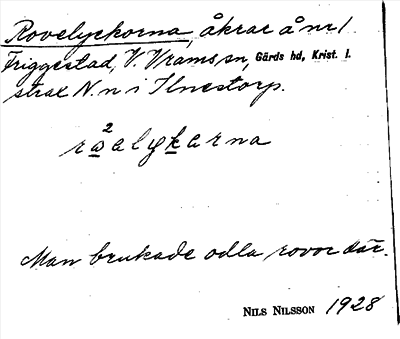 Rovelyckorna, åkrar å nr 1
Friggestad, V. Vrams sn, Gärds hd, Krist. l.
strax N. n i Ilnestorp.
Man brukade odla rovor där.
NILS NILSSON 1928